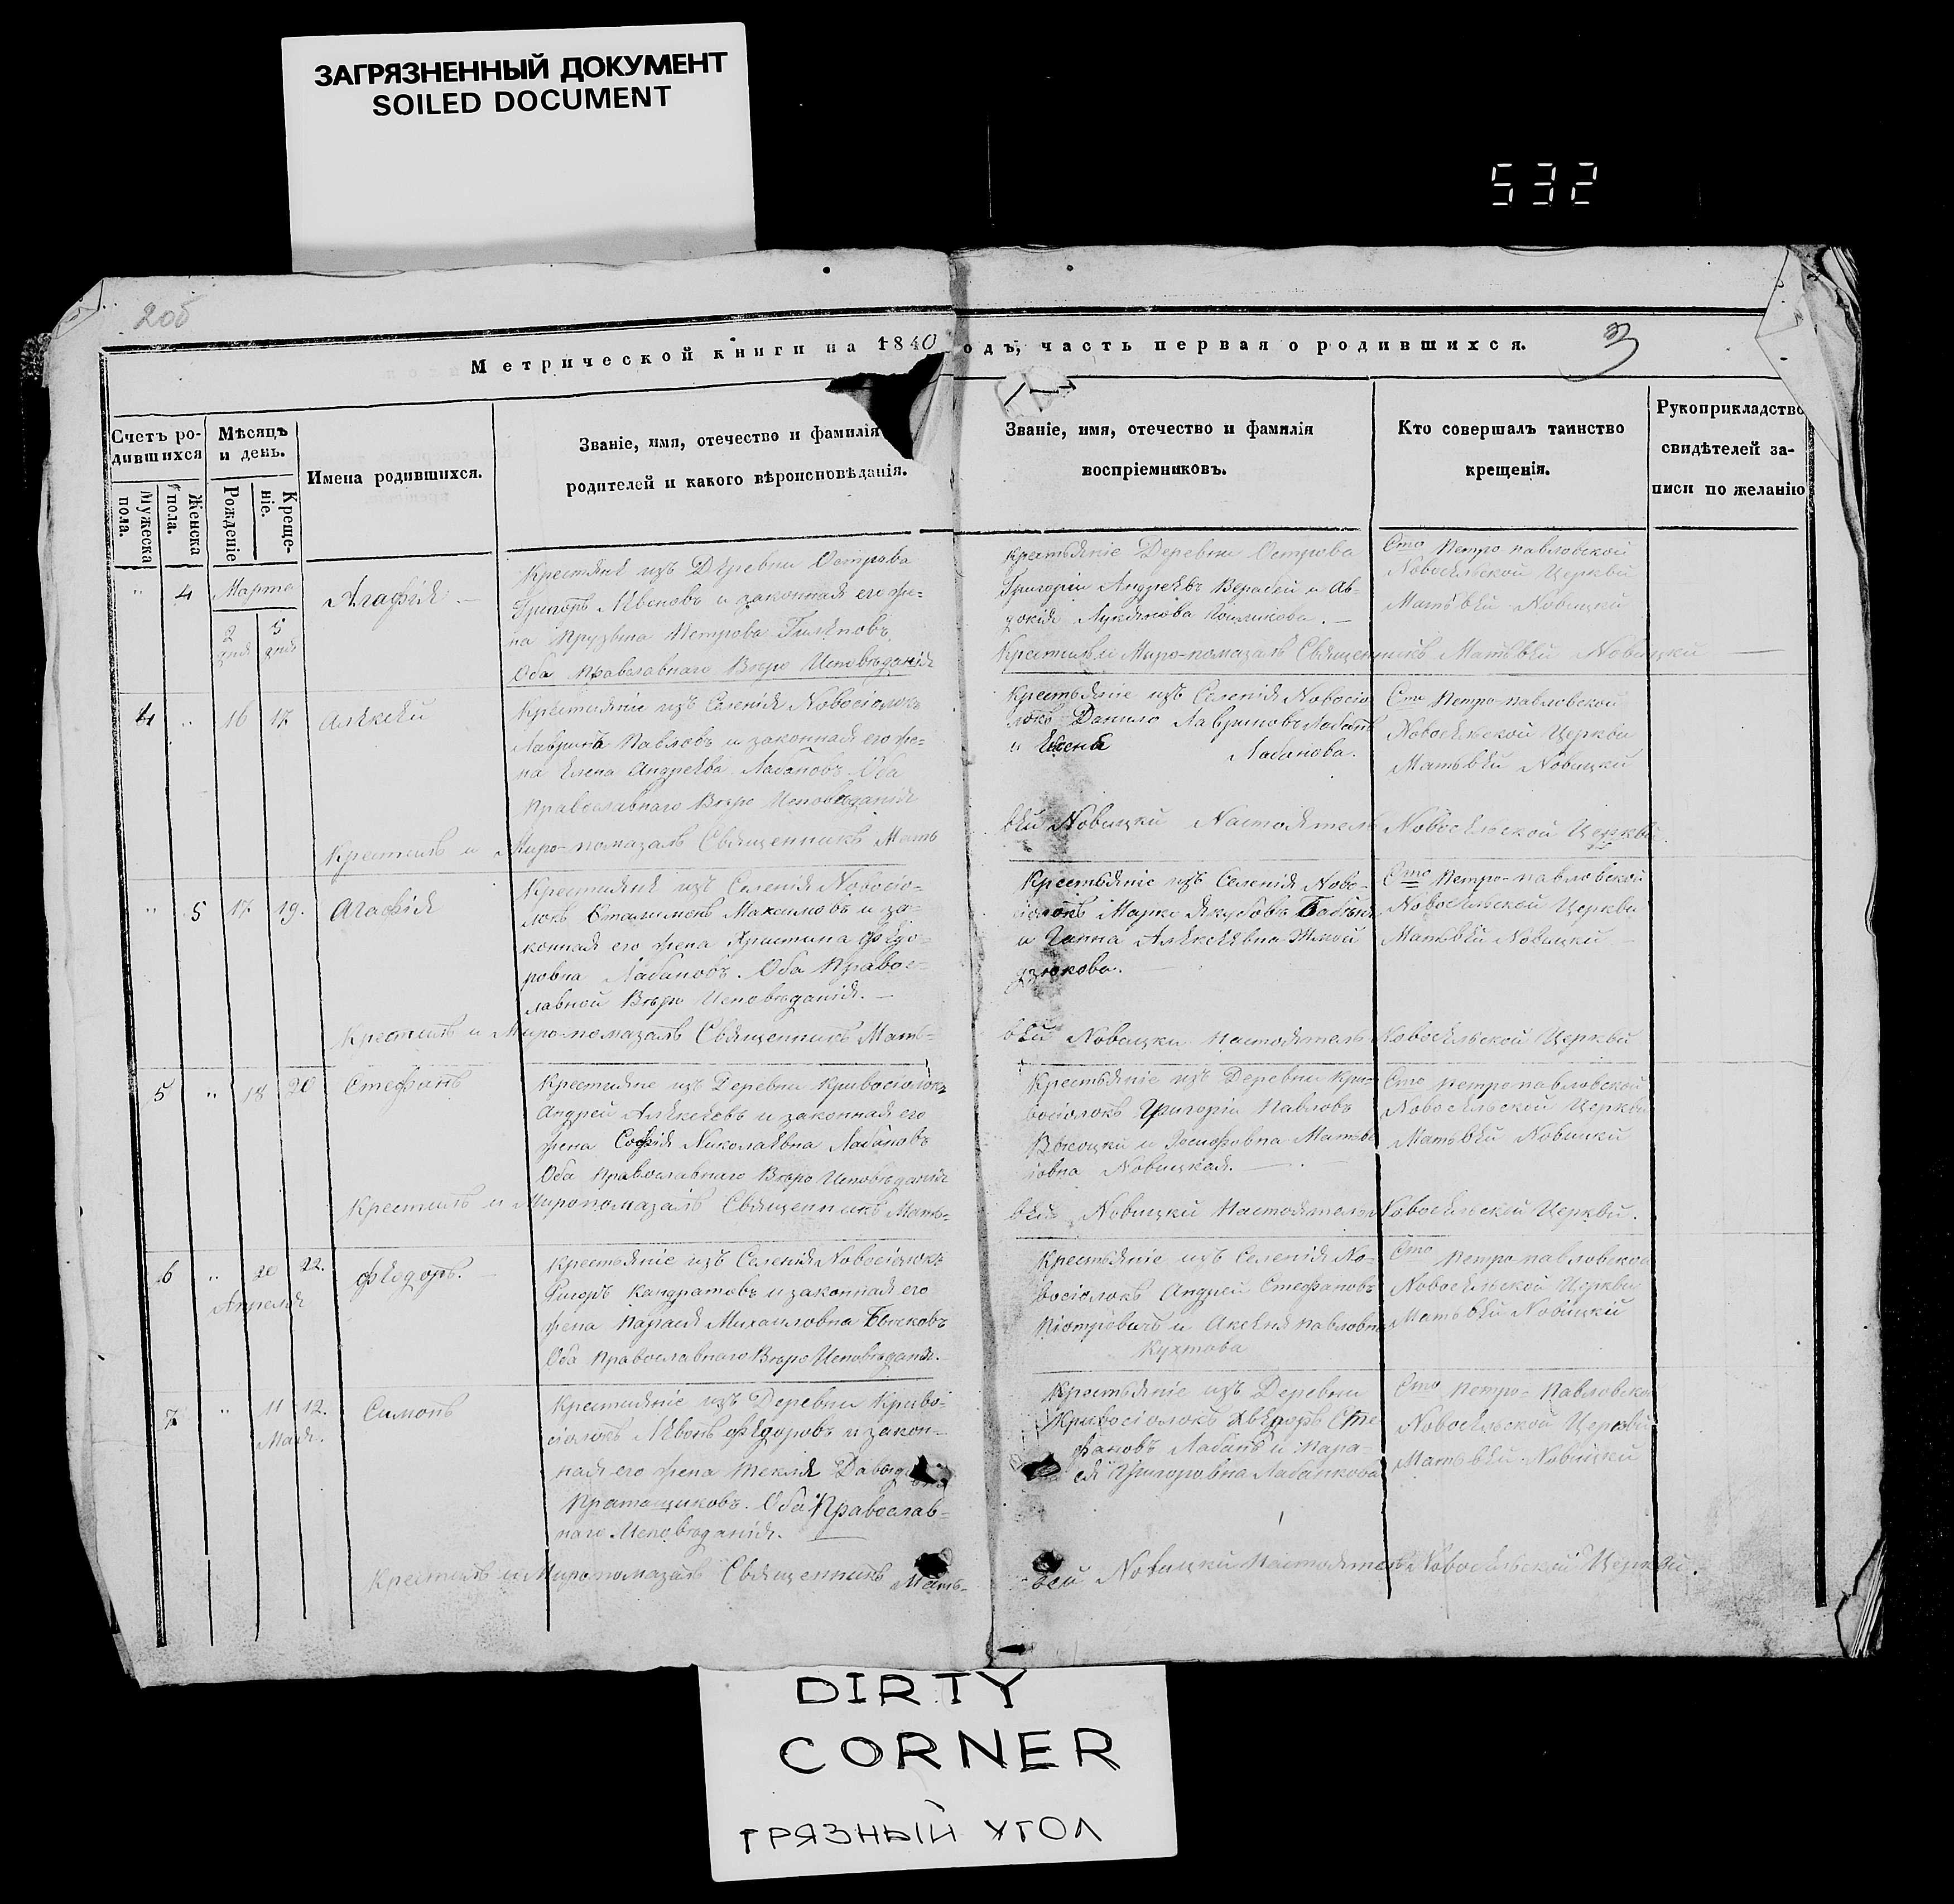 ЗАГРЯЗНЕННЫЙ ДОКУМЕНТ
SOILED DOCUMENT
532
2об
3
Метрической книги на 1840 одъ, часть первая о родившихся.
Счетъ ро-
дившихся
Мужеска пола.
Женска пола.
Мѣсяцъ
и день.
Рожденіе
Креще-
ніе.
Имена родившихся.
Званіе, имя, отечество и фамилія
родителей и какого вѣроисповѣданія.
Званіе, имя, отечество и фамилія
воспріемниковъ.
Кто совершалъ таинство
крещенія.
Рукоприкладство
свидѣтелей за-
писи по желанію
" 4 Марта
2 дня 3 дня
Агафія
Крестяне изъ Деревни Острова
Григоръ Лѣвоновъ и законная его же=
на Прузына Петрова
Оба Православнаго Вѣро Исповѣданія
Крестьяніе Деревни Острова
Григорій Андреевъ и Ав-
докія
Сто Петро павловской
Новосельской Церкви
Матьвѣй Новицкій
Крестилъ и Миро-помазалъ Священникъ Матьвѣй Новицкій
4 " 16 17 Алѣксѣй
Крестіяніе изъ Селенія Новосіолокъ
Павловъ и законная его же=
на Елена Андреѣва Лабановъ Оба
Православнаго Вѣро Исповѣданія
Крестьяніе изъ Селенія Новосіо
локъ Данило
Лабанова.
Сто Петро-павловской
Новосельской Церкви
Матьвѣй Новицкій
Крестилъ и Миро-помазалъ Священникъ Мать
вѣй Новицкій Настоятель Новосельской Церкви
" 5 17 19. Агафія
Крестіяне изъ Селенія Новосіо-
локъ Максимовъ и за-
конная его жена Христина Фѣдо-
ровна Лабановъ. Оба Правос-
лавной Вѣро Исповѣданія.
Крестьяніе изъ Селенія Ново-
сіолокъ Марко Якубовъ
и Ганна Алѣксѣевна
Сто Петро-павловской
Новосельской Церкви
Матьвѣй Новицкій
Крестилъ и Миро-помазалъ Священникъ Мать-
вѣй Новицкій Настоятель Новосельской Церкви
5 " 18 20 Стефанъ
Крестіяне изъ Деревни Кривосіолокъ
Андрей Алѣксѣевъ и законная его
жена Софія Николаѣвна Лабановъ
Оба Православнаго Вѣро Исповѣданія
Крестьяніе изъ Деревни Кри-
восіолокъ Григорій Павловъ
Высоцкій и Матьвѣ
іовна Новицкая.
Сто Петро павловской
Новосельской Церкви
Матьвѣй Новицкій
Крестилъ и Миропомазалъ Священникъ Мать-
вѣй Новицкій Настоятель Новосельской Церкви.
6 " 20 22. Фѣодоръ.
Апреля
Крестьяніе изъ Селенія Новосіолокъ
Кандратовъ и законная его
жена Михаиловна
Оба Православнаго Вѣро Исповѣданія.
Крестьяніе изъ Селенія Но-
восіолокъ Андрей Стефановъ
Піотровичъ и Аксеня Павловна
Кухтова
Сто Петро павловской
Новосельской Церкви
Матьвѣй Новицкій
7 " 11 12. Симонъ
Мая.
Крестіяніе изъ Деревни Криво-
сіолокъ Лѣвонъ Фѣдоровъ и закон-
ная его жена Текля
Оба Православ-
наго Исповѣданія.
Крестьяніе изъ Деревни
Кривосіолокъ Сте
фановъ Лабанъ и Мара-
ся Григоровна Лабанкова
Сто Петро-Павловской
Новосельской Церкви
Матьвѣй Новицкій
Крестилъ и Миропомазалъ Священникъ Мать-
вей Новицкій Настоятель Новосельской Церкви.
DIRTY
CORNER
ГРЯЗНЫЙ УГОЛ